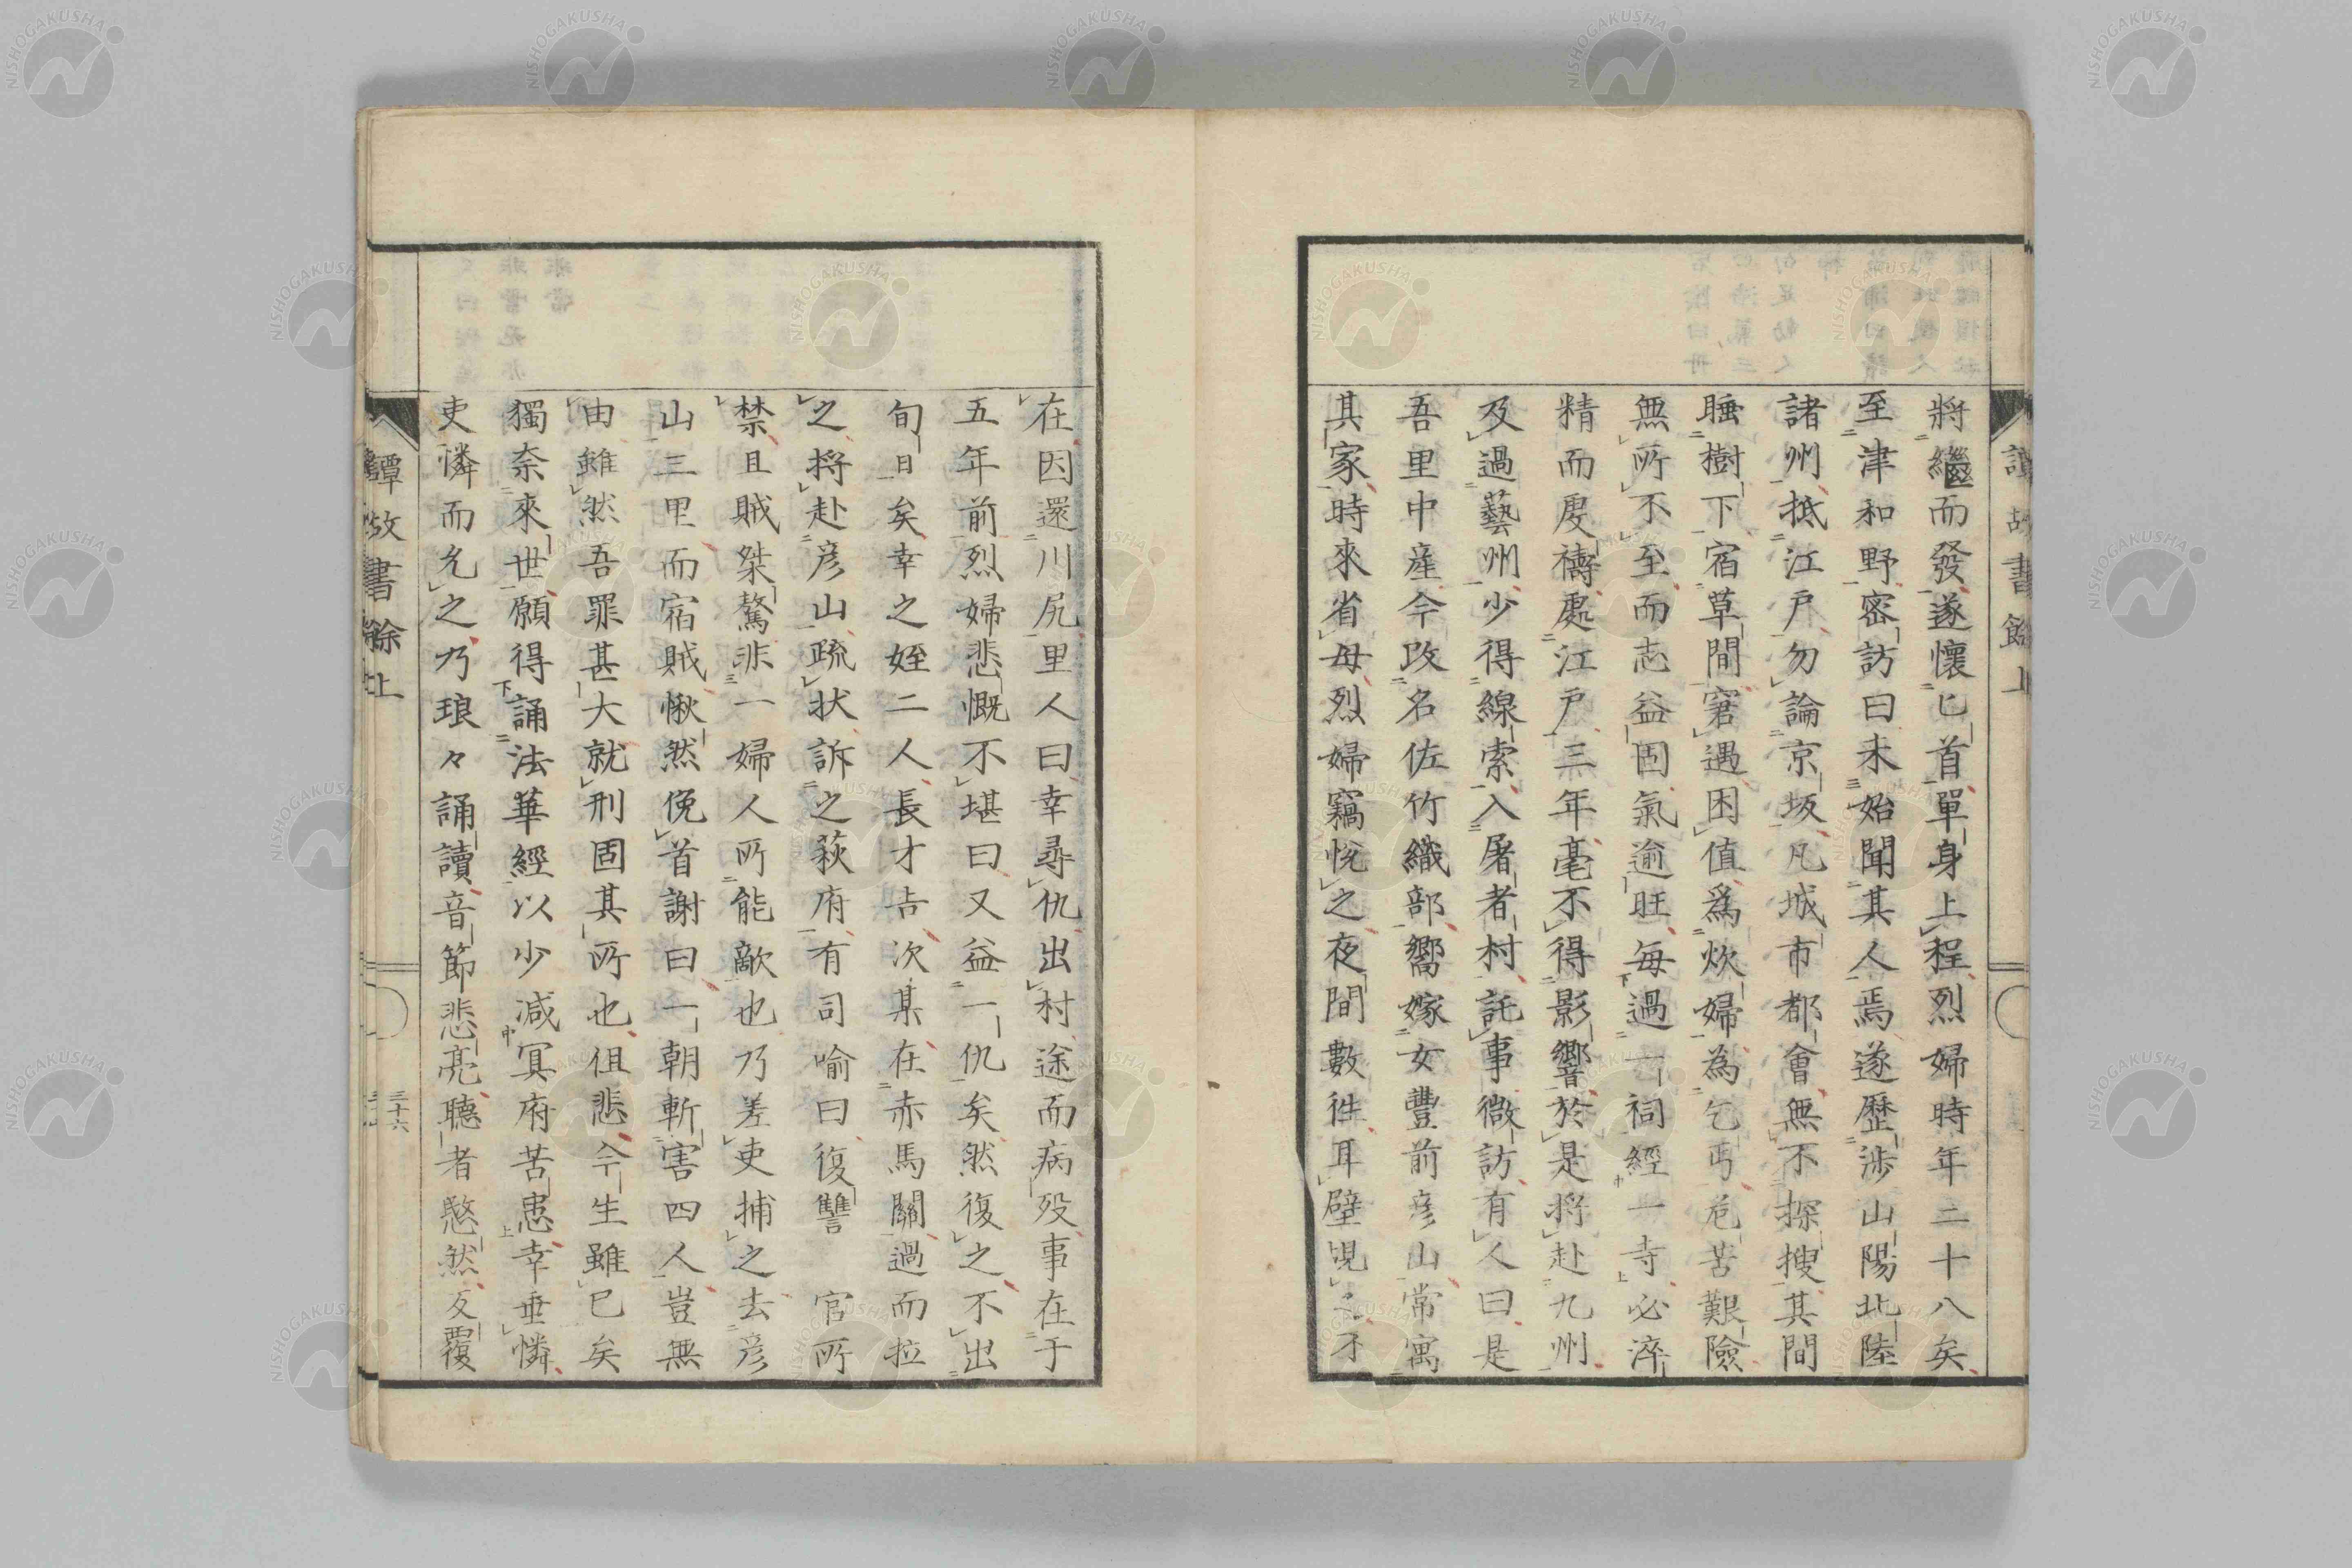 將繼而發遂懷匕首單身上程烈婦時年二十八矣
至津和野密訪曰未始聞其人焉遂歷涉山陽北陸
諸州抵江戸勿論京坂凡城市都會無不探搜其間
睡樹下宿草間窘遇困值爲炊婦為乞丐危苦艱險
無所不至而志益固氣逾旺每過一祠經一寺必淬
精而虔禱處江戸三年毫不得影響於是將赴九州
及過藝州少得線索入屠者村託事微訪有人曰是
吾里中產今改名佐竹織部嚮嫁女豐前彥山常寓
其家時來省母烈婦竊悅之夜間數徃耳壁覘之不
在因還川尻里人曰幸尋仇出村途而病歿事在于
五年前烈婦悲慨不堪曰又益一仇矣然復之不出
旬日矣幸之姪二人長才吉次某在赤馬關過而拉
之將赴彥山疏狀訴之萩府有司喻曰復讐 官所
禁且賊桀驁非一婦人所能敵也乃差吏捕之去彥
山三里而宿賊愀然俛首謝曰一朝斬害四人豈無
由雖然吾罪甚大就刑固其所也但悲今生雖已矣
獨奈來世願得誦法華經以少減冥府苦患幸垂憐
吏憐而允之乃琅々誦讀音節悲亮聽者愍然反覆
譚故書餘上
三十六
NISHOGAKUSHA